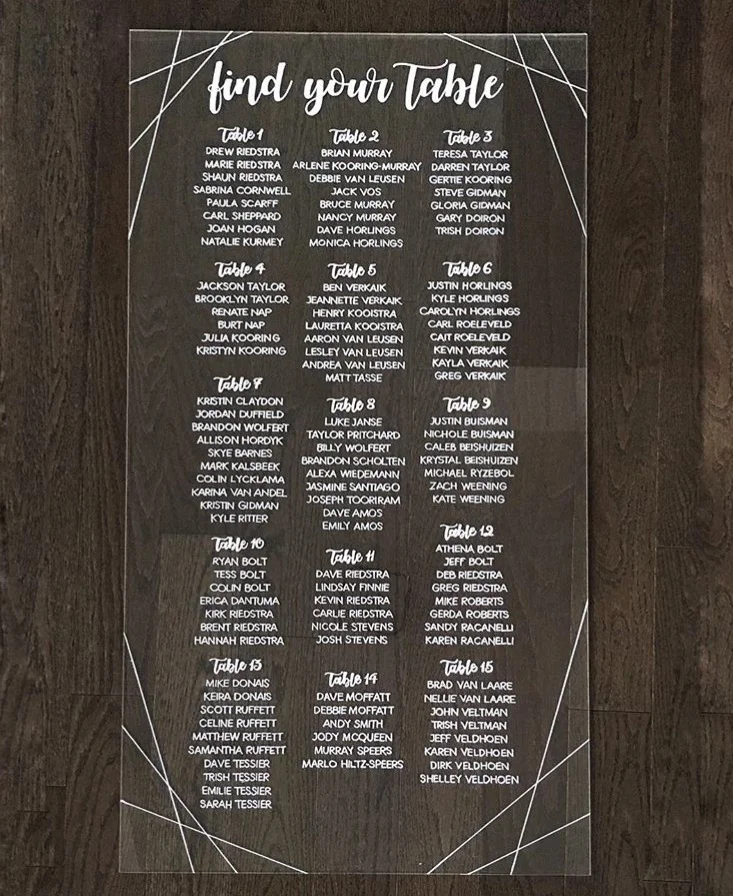 find your Table
Table 1
DREW RIEDSTRA
MARIE RIEDSTRA
SHAUN RIEDSTRA
SABRINA CORNWELL
PAULA SCARFF
CARL SHEPPARD
JOAN HOGAN
NATALIE KURMEY
Table 2
BRIAN MURRAY
ARLENE KOORING-MURRAY
DEBBIE VAN LEUSEN
JACK VOS
BRUCE MURRAY
NANCY MURRAY
DAVE HORLINGS
MONICA HORLINGS
Table 3
TERESA TAYLOR
DARREN TAYLOR
GERTIE KOORING
STEVE GIDMAN
GLORIA GIDMAN
GARY DOIRON
TRISH DOIRON
Table 4
JACKSON TAYLOR
BROOKLYN TAYLOR
RENATE NAP
BURT NAP
JULIA KOORING
KRISTYN KOORING
Table 5
BEN VERKAIK
JEANNETTE VERKAIK
HENRY KOOISTRA
LAURETTA KOOISTRA
AARON VAN LEUSEN
LESLEY VAN LEUSEN
ANDREA VAN LEUSEN
MATT TASSE
Table 6
JUSTIN HORLINGS
KYLE HORLINGS
CAROLYN HORLINGS
CARL ROELEVELD
CAIT ROELEVELD
KEVIN VERKAIK
KAYLA VERKAIK
GREG VERKAIK
Table 7
KRISTIN CLAYDON
JORDAN DUFFIELD
BRANDON WOLFERT
ALLISON HORDYK
SKYE BARNES
MARK KALSBEEK
COLIN LYCKLAMA
KARINA VAN ANDEL
KRISTIN GIDMAN
KYLE RITTER
Table 8
LUKE JANSE
TAYLOR PRITCHARD
BILLY WOLFERT
BRANDON SCHOLTEN
ALEXA WIEDEMANN
JASMINE SANTIAGO
JOSEPH TOORIRAM
DAVE AMOS
EMILY AMOS
Table 9
JUSTIN BUISMAN
NICHOLE BUISMAN
CALEB BEISHUIZEN
KRYSTAL BEISHUIZEN
MICHAEL RYZEBOL
ZACH WEENING
KATE WEENING
Table 10
RYAN BOLT
TESS BOLT
COLIN BOLT
ERICA DANTUMA
KIRK RIEDSTRA
BRENT RIEDSTRA
HANNAH RIEDSTRA
Table 11
DAVE RIEDSTRA
LINDSAY FINNIE
KEVIN RIEDSTRA
CARLIE RIEDSTRA
NICOLE STEVENS
JOSH STEVENS
Table 12
ATHENA BOLT
JEFF BOLT
DEB RIEDSTRA
GREG RIEDSTRA
MIKE ROBERTS
GERDA ROBERTS
SANDY RACANELLI
KAREN RACANELLI
Table 13
MIKE DONAIS
KEIRA DONAIS
SCOTT RUFFETT
CELINE RUFFETT
MATTHEW RUFFETT
SAMANTHA RUFFETT
DAVE TESSIER
TRISH TESSIER
EMILIE TESSIER
SARAH TESSIER
Table 14
DAVE MOFFATT
DEBBIE MOFFATT
ANDY SMITH
JODY MCQUEEN
MURRAY SPEERS
MARLO HILTZ-SPEERS
Table 15
BRAD VAN LAARE
NELLIE VAN LAARE
JOHN VELTMAN
TRISH VELTMAN
JEFF VELDHOEN
KAREN VELDHOEN
DIRK VELDHOEN
SHELLEY VELDHOEN